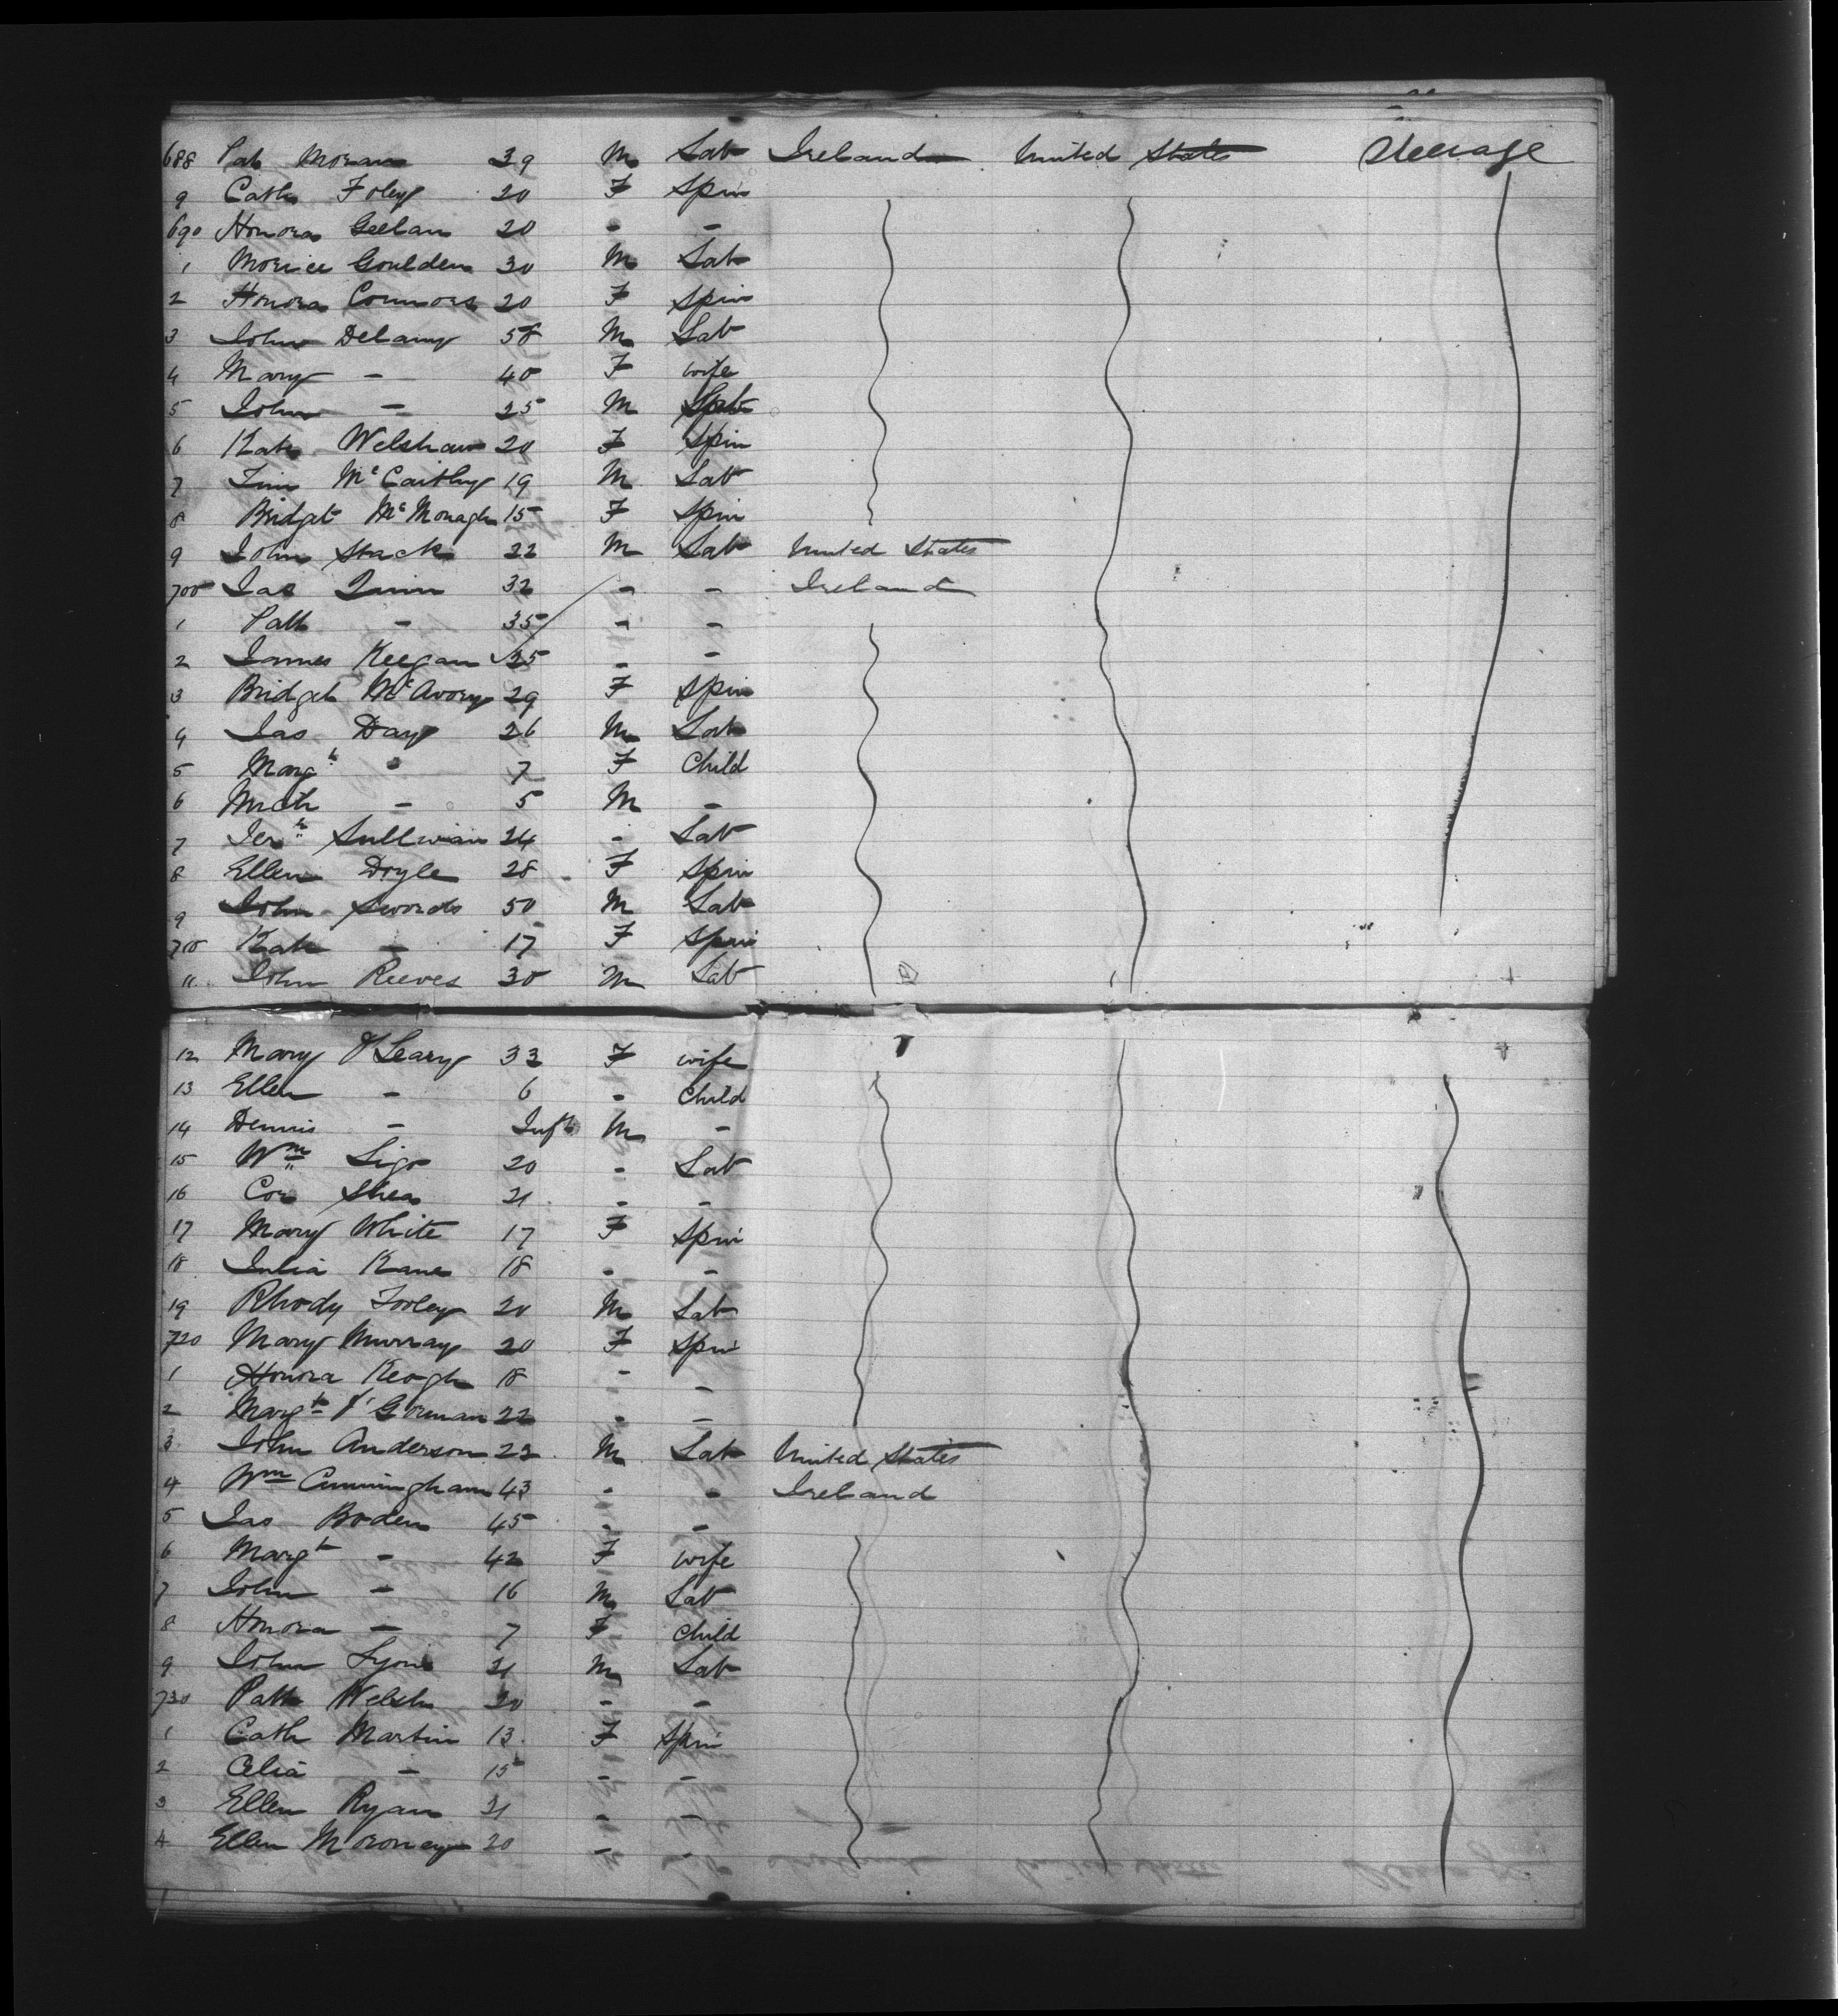 688 Pat Moran 39 M Lab Ireland United States Steerage
9 Cath Foley 20 F Spin
690 Honora Geelan 20 - -
1 Morice Goulden 30 M Lab
2 Honora Connors 20 F Spin
3 John Delany 58 M Lab
4 Mary - 40 F wife
5 John - 25 M Lab
6 Kate Welshaw 20 F Spin
7 Tim McCarthy 19 M Lab
8 Bridget McMonagh 15 F Spin
9 John Stack 22 M Lab United States
700 Jas Quinn 32 - - Ireland
1 Patk - 35 - -
2 James Keegan 35 - -
3 Bridget McAvory 29 F Spin
4 Jas Day 26 M Lab
5 Margt " 7 F Child
6 Mich - 5 M -
7 Jerh Sullivan 24 - Lab
8 Ellen Doyle 28 F Spin
9 John Swords 50 M Lab
710 Kate - 17 F Spin
11 John Reeves 30 M Lab
12 Mary O'Leary 33 F wife
13 Ellen - 6 - Child
14 Dennis - Inft M -
15 Wm Ligo 20 - Lab
16 Cor Shea 21 - -
17 Mary White 17 F Spin
18 Julia Kane 18 - -
19 Rhody Fooley 20 M Lab
720 Mary Murray 20 F Spin
1 Honora Keogh 18 - -
2 Margt O'Gorman 22 - -
3 John Anderson 23 M Lab United States
4 Wm Cunningham 43 - - Ireland
5 Jas Boden 45 - -
6 Margt - 42 F wife
7 John - 16 M Lab
8 Honora - 7 F Child
9 John Lyons 21 M Lab
730 Patk Welsh 20 - -
1 Cath Martin 13 F Spin
2 Celia - 15 - -
3 Ellen Ryan 21 - -
4 Ellen Moroney 20 - -